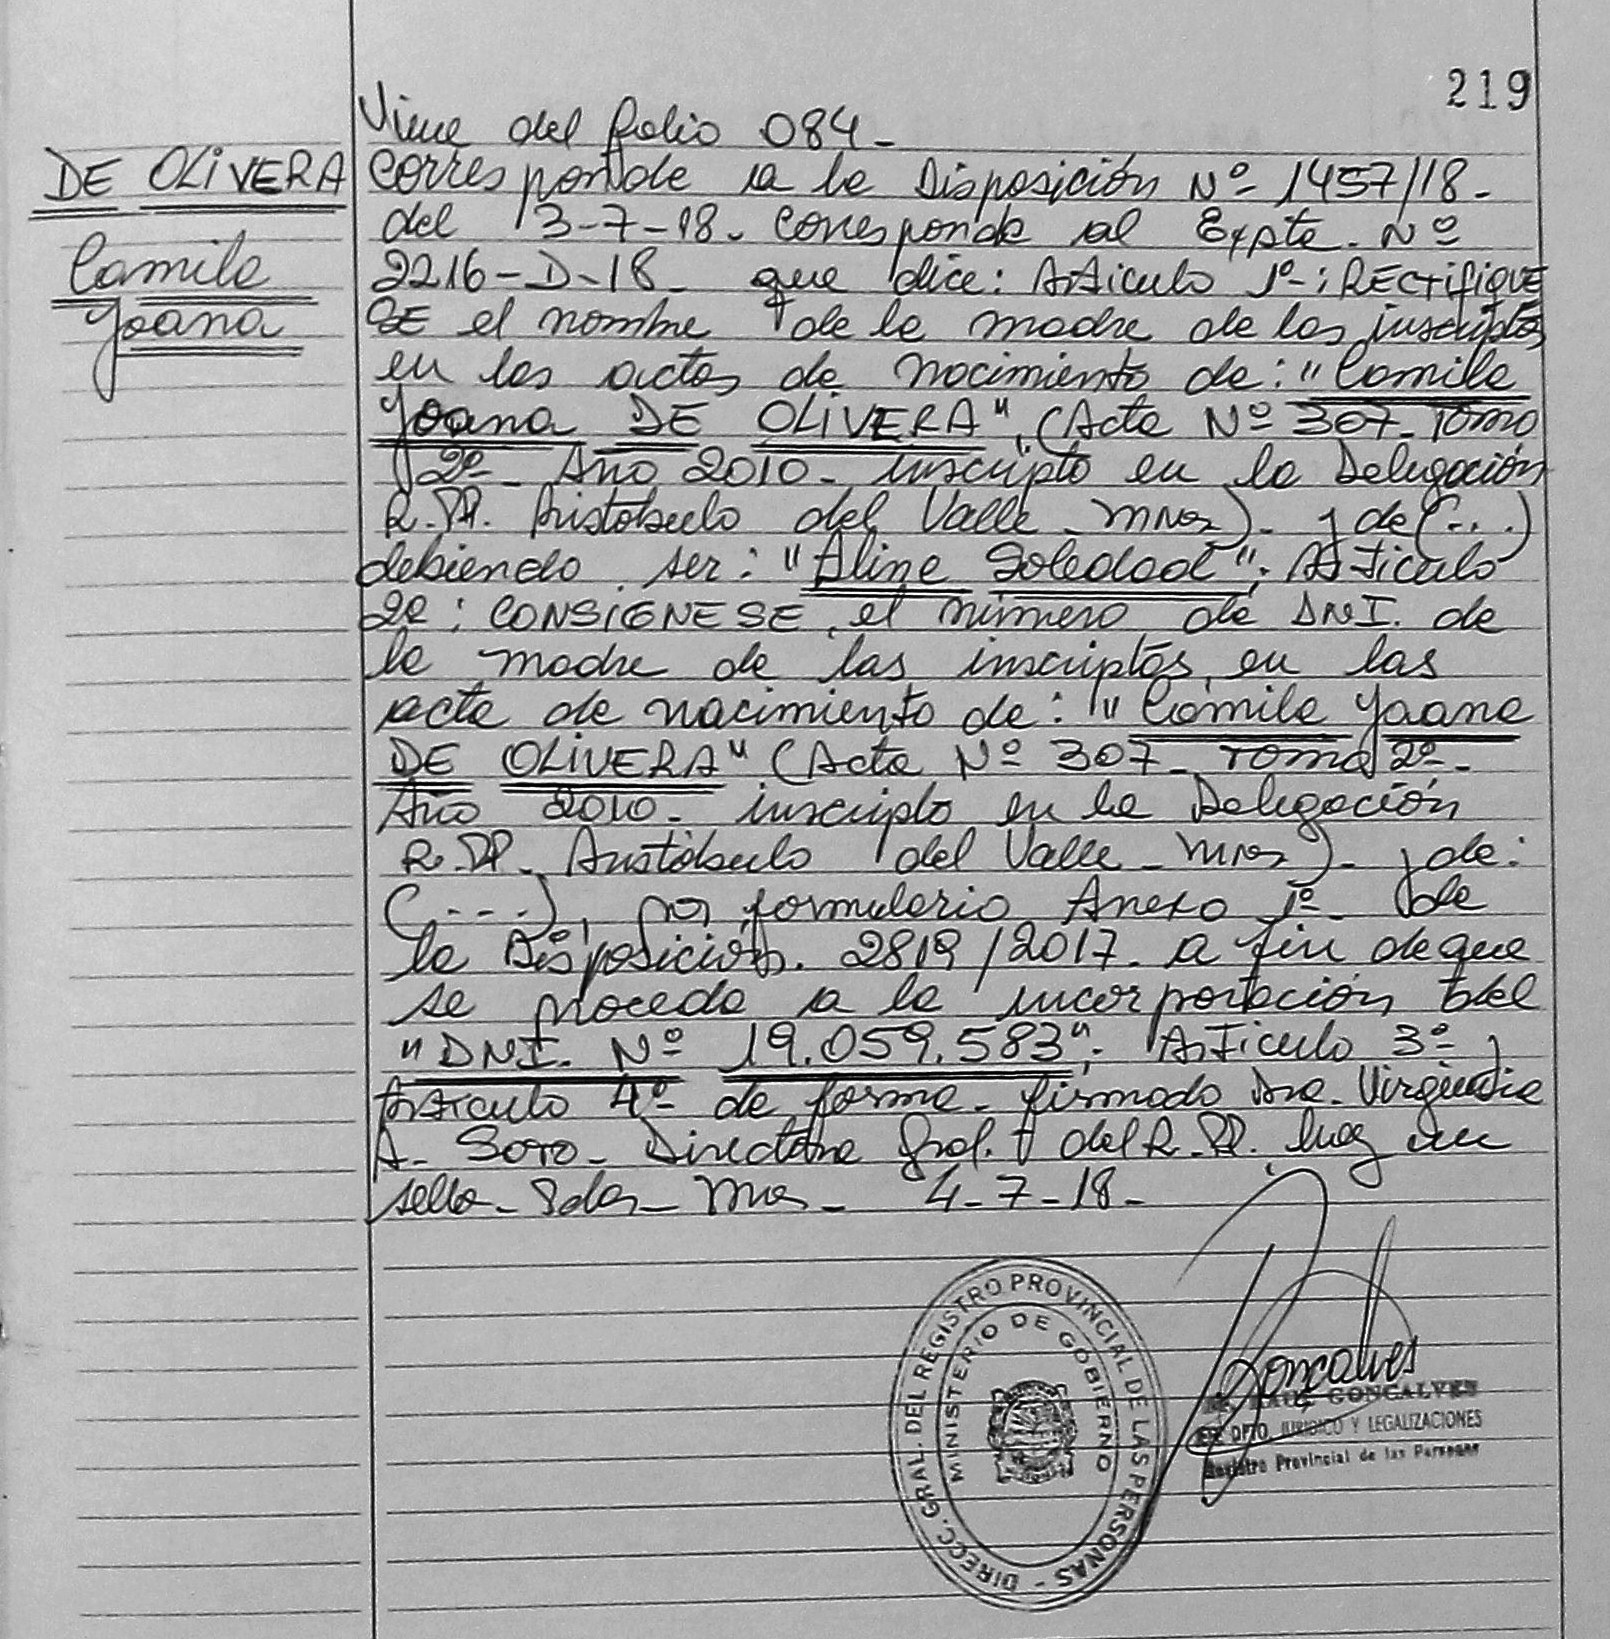 219
Viene del folio 084-
DE OLIVERA
Camila
Yoana
Corresponde a la Disposición Nº 1457/18-
del 3-7-18. Corresponde al Expte. Nº
2216-D-18- que dice: Artículo 1º: RECTIFIQUE
SE el nombre de la madre de las inscriptas
en las actas de nacimiento de: "Camila
Yoana DE OLIVERA", (Acta Nº 307- Tomo
2º- Año 2010- inscripto en la Delegación
R.PP. Aristóbulo del Valle - Mnes)- y de (....)
debiendo ser: "Aline Soledad"; Artículo
2º: CONSIGNESE, el número de DNI. de
la madre de las inscriptas, en las
acta de nacimiento de: "Camila Yoana
DE OLIVERA" (Acta Nº 307- Tomo 2º-
Año 2010- inscripto en la Delegación
R.PP. Aristóbulo del Valle - Mnes)- y de:
(....), por formulario Anexo 1º- de
la Disposición. 2819/2017- a fin de que
se proceda a la incorporación del
"DNI. Nº 19.059.583"; Artículo 3º y
Artículo 4º de forma- firmado Dra. Virginia
A- Soto- Directora Gral. del R.PP. hay un
sello- Pdas- Mnes- 4-7-18-
DIRECC. GRAL. DEL REGISTRO PROVINCIAL DE LAS PERSONAS -
MINISTERIO DE GOBIERNO
Goncalves
RAUL GONCALVES
DPTO. JURIDICO Y LEGALIZACIONES
Registro Provincial de las Personas